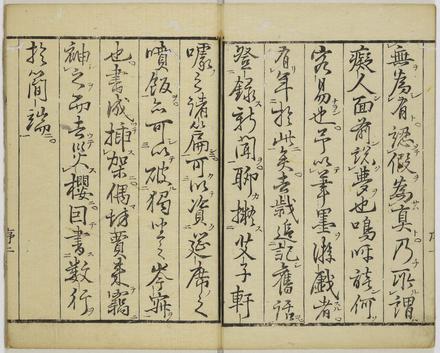 無為有認假為真乃所謂
癡人面前説夢也嗚呼談何
容易也予以筆墨游戲者
有年於此矣去歳追記舊話
登錄新聞聊擬艾子軒
噱之諸篇可以資筵席之
噴飯亦可以破獨坐之岑寂
也書成插架偶坊賈來竊
袖之而去災櫻因書數行
於簡端
序二